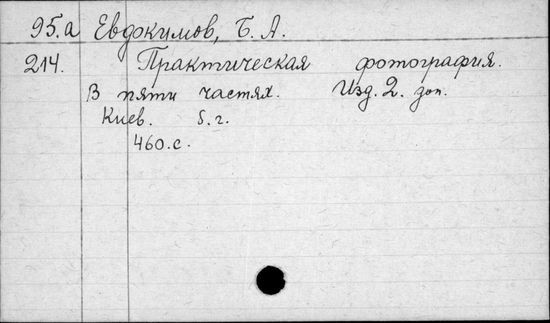 95.а Евдокимов, Б. А.
214. Практическая фотография.
В пяти частях. Изд. 2. доп.
Киев. б. г.
460. с.